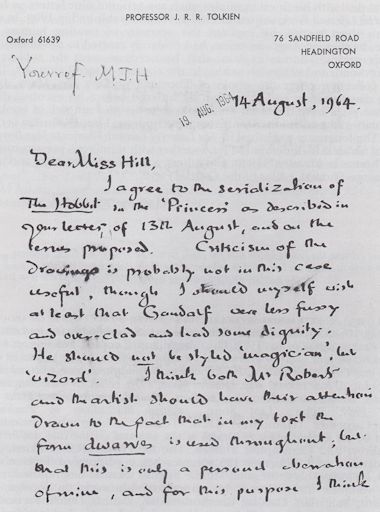 PROFESSOR J. R. R. TOLKIEN
Oxford 61639
76 SANDFIELD ROAD
HEADINGTON
OXFORD
Your ref. M.J.H.
19. AUG. 1964
14 August, 1964.
Dear Miss Hill,
I agree to the serialization of
The Hobbit in the 'Princess' as described in
your letter, of 13th August, and on the
terms proposed. Criticism of the
drawings is probably not in this case
useful, though I should myself wish
at least that Gandalf were less fussy
and overclad and had some dignity.
He should not be styled 'magician', but
'wizard'. I think both Mr Roberts
and the artist should have their attention
drawn to the fact that in my text the
form dwarves is used throughout; but
that this is only a personal aberration
of mine, and for this purpose I think